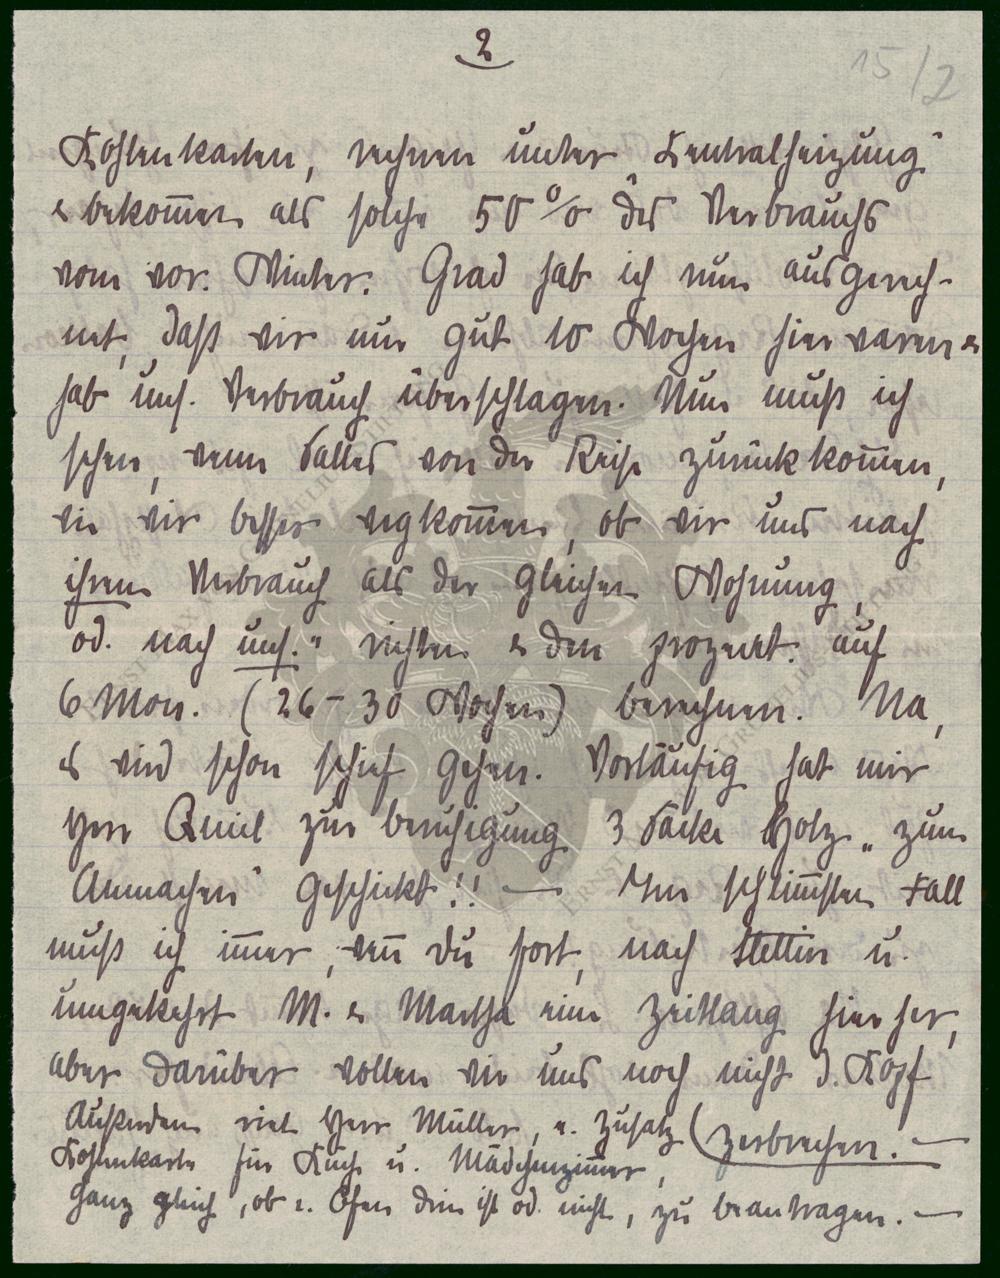 2
15/2
Kohlenkarten, rechnen unter Zentralheizung"
& bekom̅en als solche 50% des Verbrauchs
vom vor. Winter. Grad hab ich nun ausgerech-
net, daß wir nur gut 10 Wochen hier waren &
hab uns. Verbrauch überschlagen. Nun muß ich
sehen, wenn Salles von der Reise zurückkom̅en,
wie wir besser wegkom̅en, ob wir uns nach
ihrem Verbrauch als der gleichen Wohnung,
od. nach uns." richten & den prozent. auf
6 Mon. (26-30 Wochen) berechnen. Na,
es wird schon schief gehen. Vorläufig hat mir
Herr Quiel zur beruhigung 3 Säcke Holz „zum
Anmachen" geschickt!! — Im schlim̅sten Fall
muß ich im̅er, wen̅ Du fort, nach Stettin u.
umgekehrt M. & Martha eine Zeitlang hierher,
aber darüber wollen wir uns noch nicht d. Kopf
zerbrechen. —
Außerdem riet Herr Müller, e. Zusatz
Kohlenkarte für Küche u. Mädchenzim̅er,
ganz gleich, ob e. Ofen drin ist od. nicht, zu beantragen. —